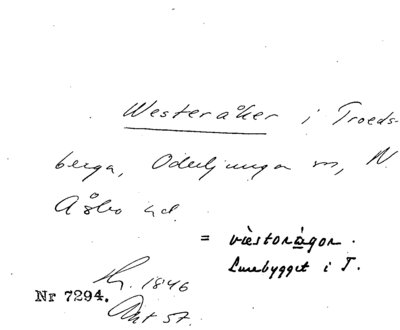 Westeråker i Troeds-
berga, Oderljunga sn, N.
Åsbo hd.
= vèstoràgor.
Lurebygget i T.
1846
Nr 7294.